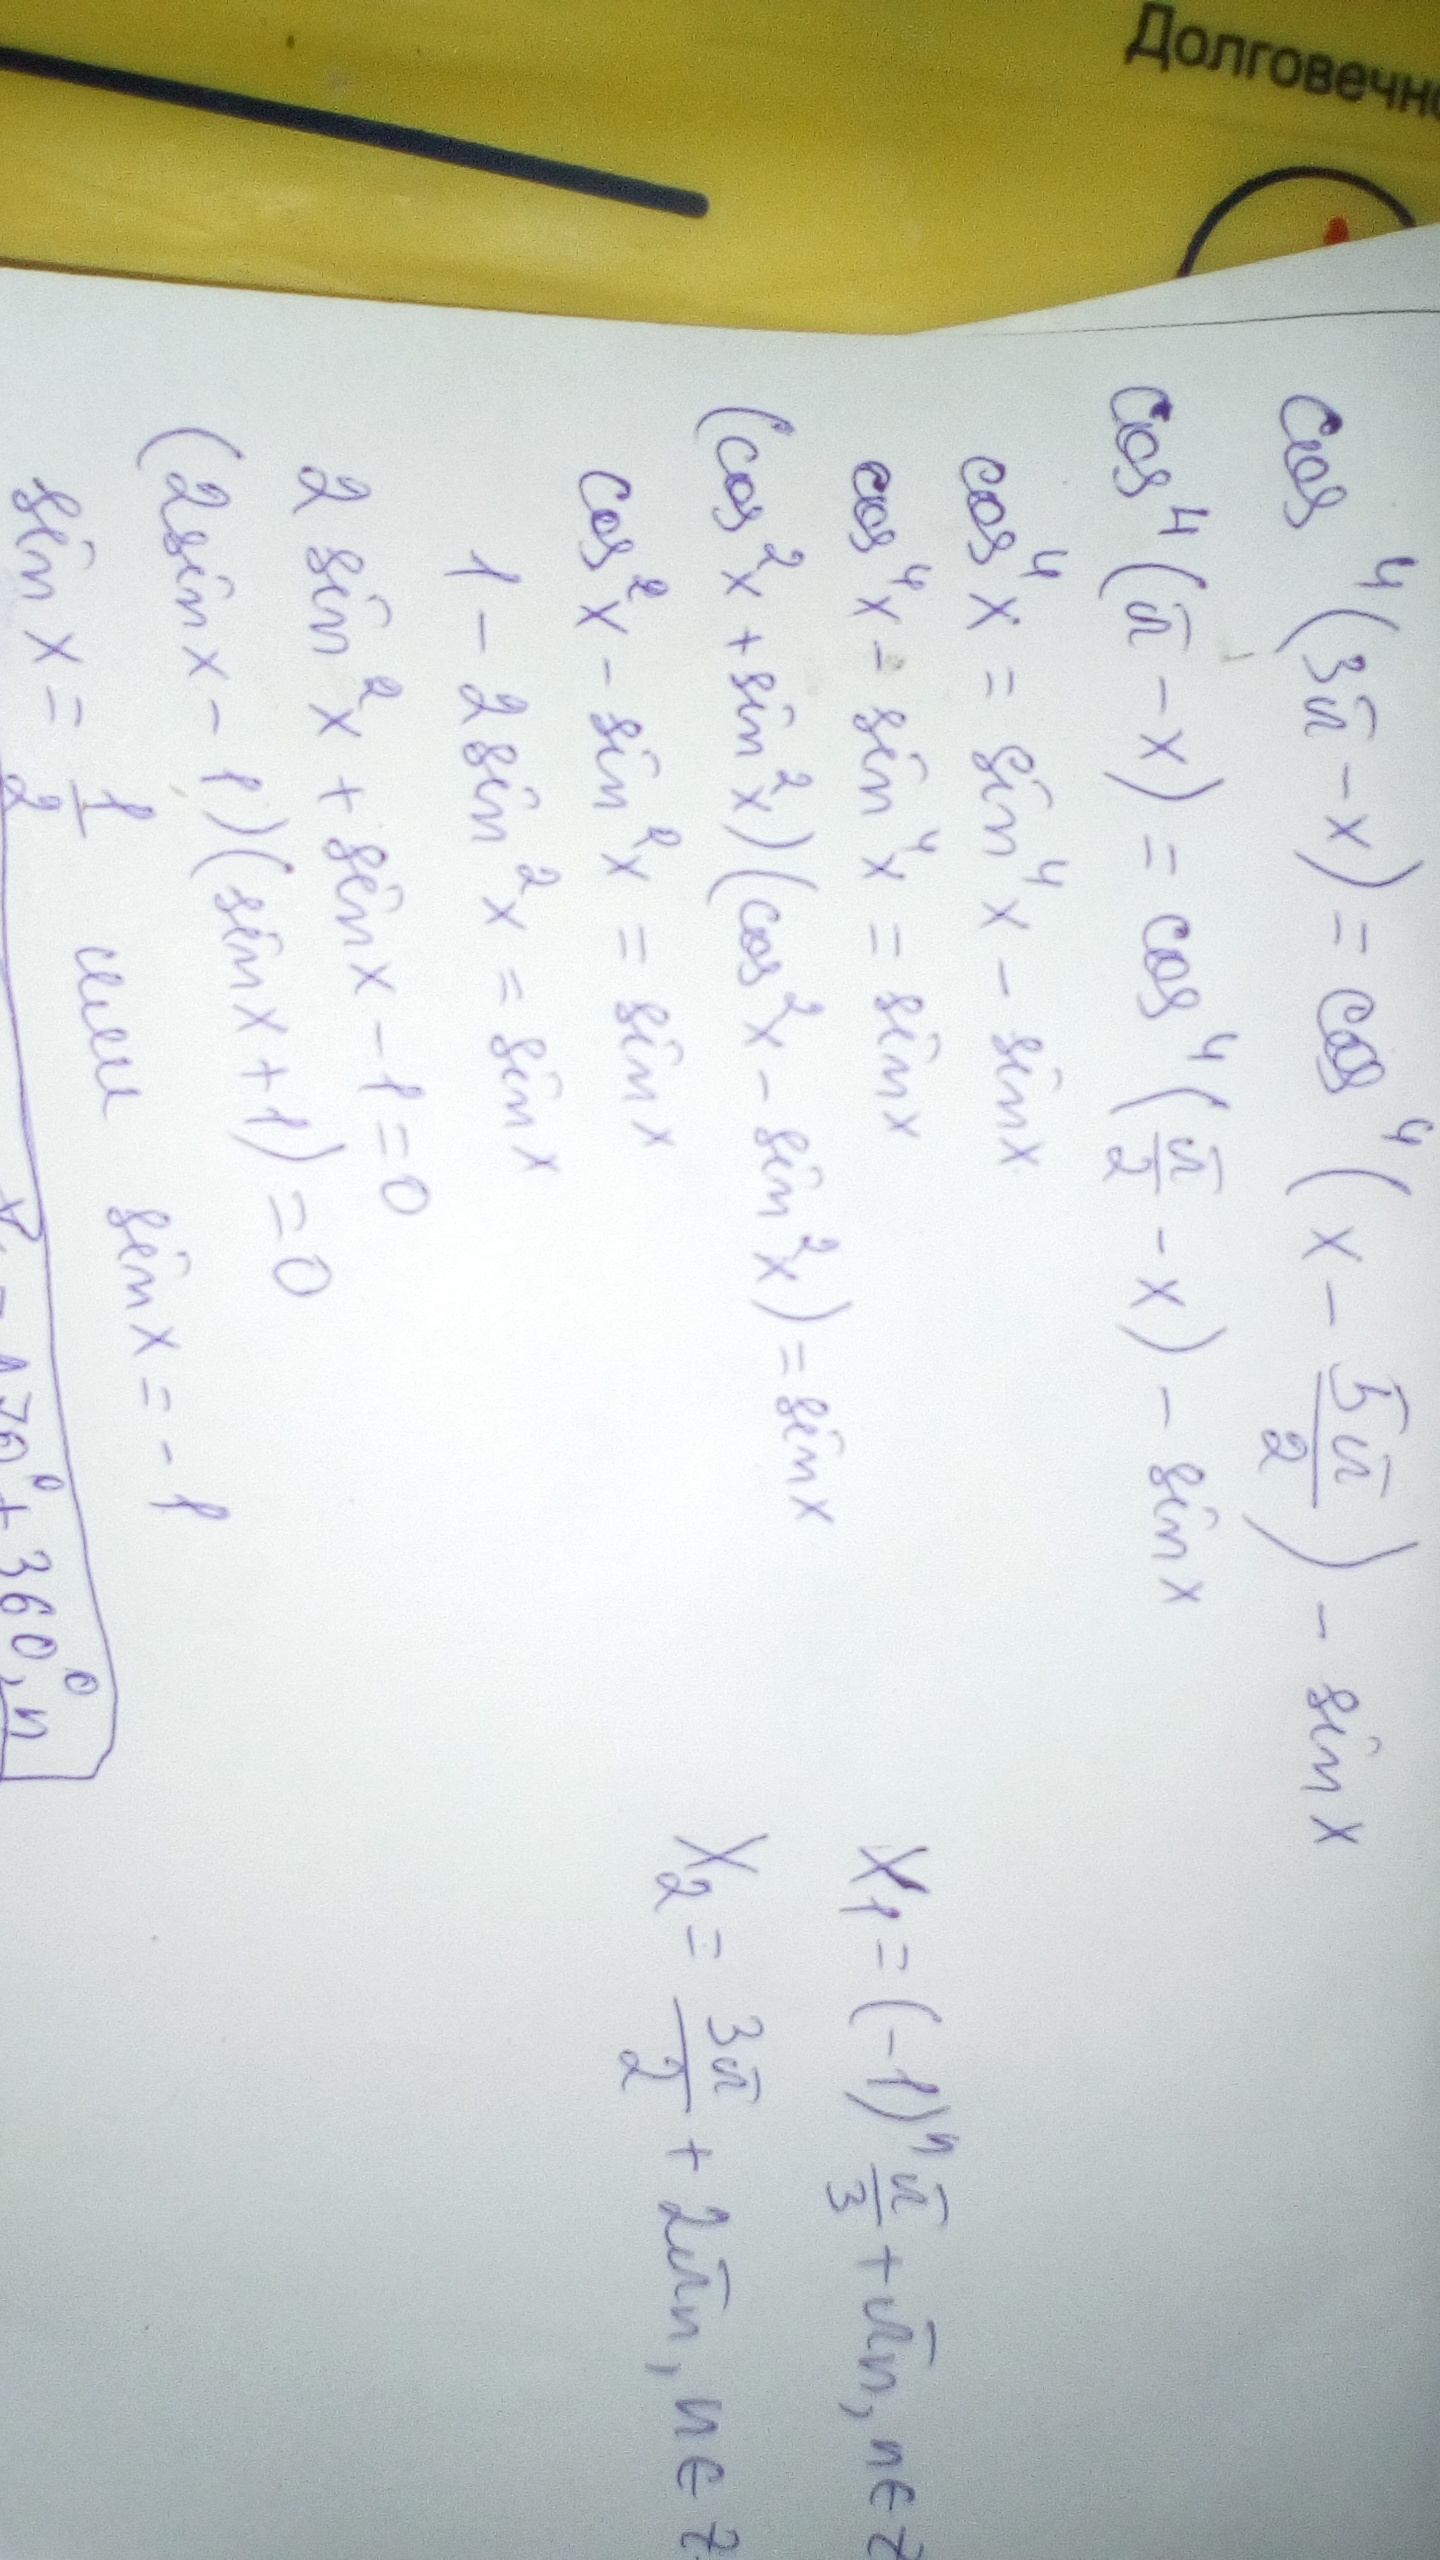 Долговечно
cos⁴(3π - x) = cos⁴(x - 5π/2) - sin x
cos⁴(π - x) = cos⁴(π/2 - x) - sin x
cos⁴x = sin⁴x - sin x
cos⁴x - sin⁴x = sin x
(cos²x + sin²x)(cos²x - sin²x) = sin x
cos²x - sin²x = sin x
1 - 2sin²x = sin x
2 sin²x + sin x - 1 = 0
(2sin x - 1)(sin x + 1) = 0
sin x = 1/2 или sin x = -1
+ 360°, n
x₁ = (-1)ⁿ π/3 + πn, n∈z
x₂ = 3π/2 + 2πn, n∈z